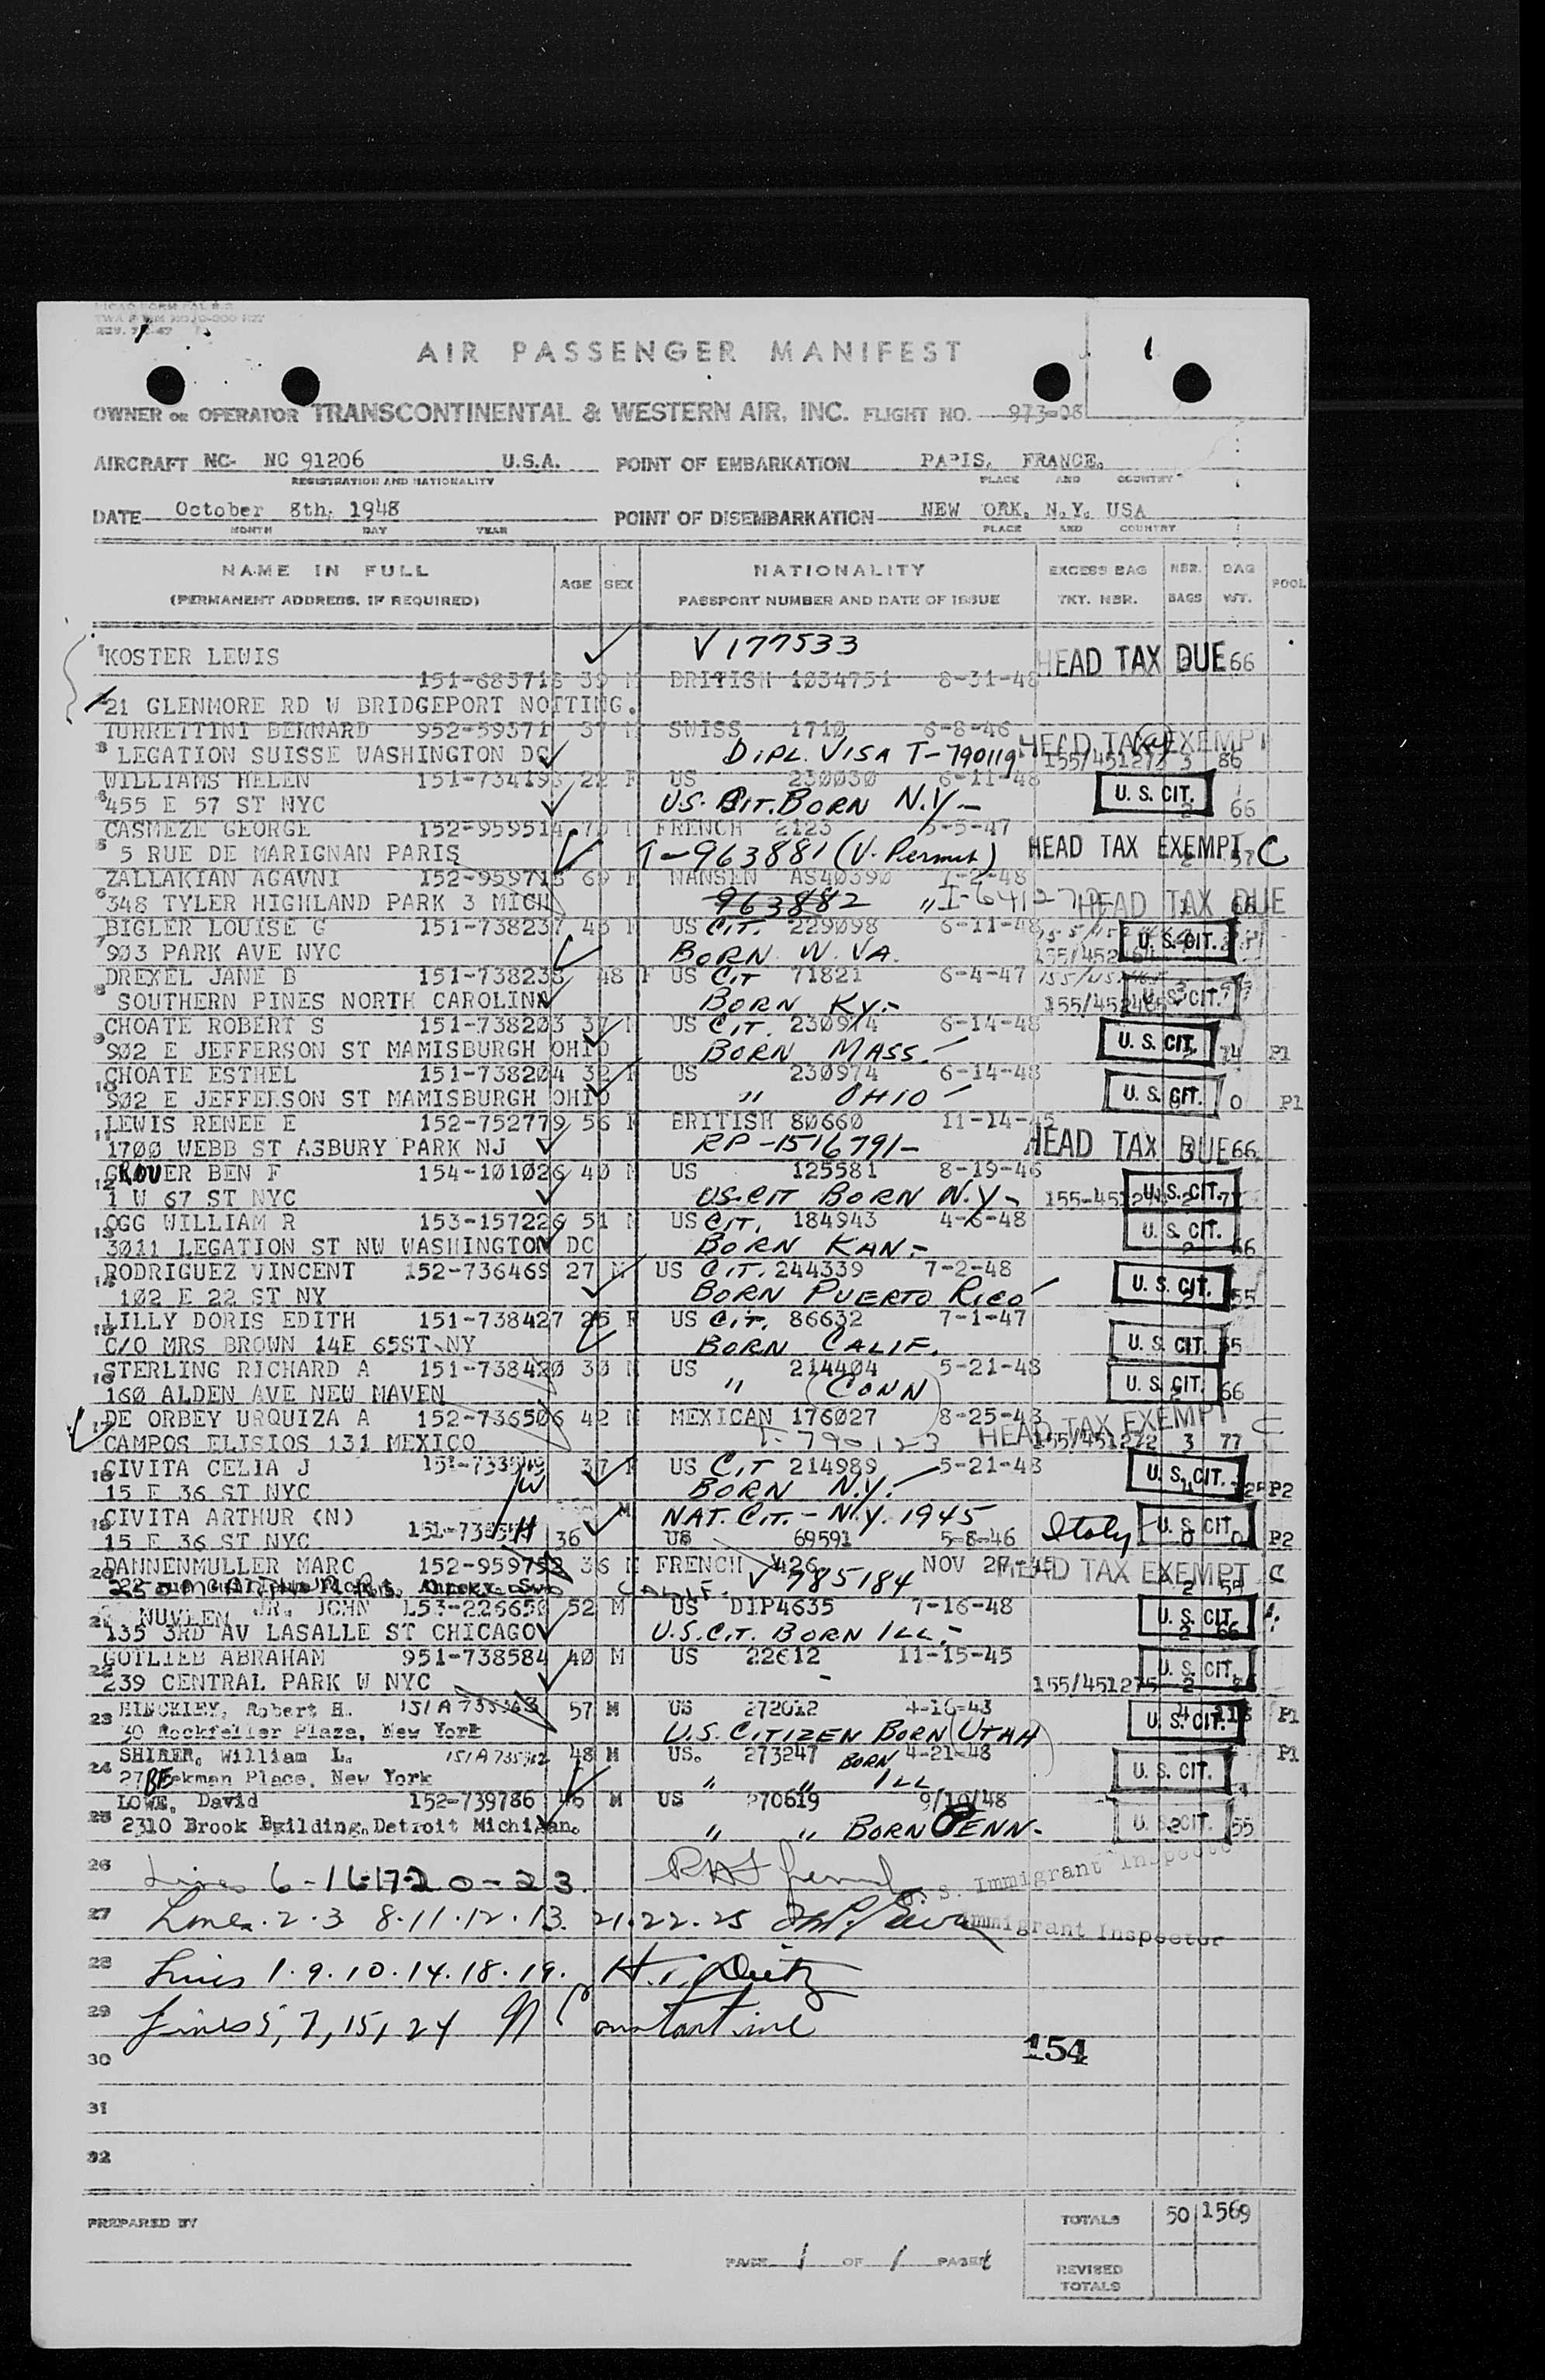 REV. 7-1-47
AIR PASSENGER MANIFEST
1
OWNER OR OPERATOR TRANSCONTINENTAL & WESTERN AIR, INC. FLIGHT NO. 973-08
AIRCRAFT NC- NC 91206 U.S.A. POINT OF EMBARKATION PARIS, FRANCE.
REGISTRATION AND NATIONALITY PLACE AND COUNTRY
DATE October 8th, 1948 POINT OF DISEMBARKATION NEW ORK, N.Y. USA
MONTH DAY YEAR PLACE AND COUNTRY
NAME IN FULL AGE SEX NATIONALITY EXCESS BAG NBR. BAG POOL
(PERMANENT ADDRESS, IF REQUIRED) PASSPORT NUMBER AND DATE OF ISSUE TKT. NBR. BAGS WT.
V177533
KOSTER LEWIS HEAD TAX DUE 66
39 M BRITISH 1034751 8-31-48
21 GLENMORE RD W BRIDGEPORT NOTTING.
TURRETTINI BERNARD 952-59371 37 M SWISS 1710 6-8-46
LEGATION SUISSE WASHINGTON DC DIPL. VISA T-790119 HEAD TAX EXEMPT 3 86
WILLIAMS HELEN 151-734193 22 F US 230030 6-11-48
455 E 57 ST NYC US. CIT. BORN N.Y- U. S. CIT. 2 66
CASMEZE GEORGE 152-959514 FRENCH 2123
5 RUE DE MARIGNAN PARIS T-963881 (V. Permit) HEAD TAX EXEMPT C
ZALLAKIAN AGAVNI 69 NANSEN AS40390 1-2-48
348 TYLER HIGHLAND PARK 3 MICH 963882 HEAD TAX DUE
BIGLER LOUISE G 151-738237 US CIT. 229098 6-11-48
903 PARK AVE NYC BORN W. VA. U. S. CIT.
DREXEL JANE B 151-738233 48 F US CIT 71821 6-4-47
SOUTHERN PINES NORTH CAROLINA BORN KY.- U. S. CIT.
CHOATE ROBERT S 151-738203 37 M US CIT. 230974 6-14-48
902 E JEFFERSON ST MAMISBURGH OHIO BORN MASS. U. S. CIT. 74 P1
CHOATE ESTHEL 151-738204 32 US 230974 6-14-48
902 E JEFFERSON ST MAMISBURGH OHIO " OHIO U. S. CIT. 0 P1
LEWIS RENEE E 152-752779 56 BRITISH 80660 11-14-45
1700 WEBB ST ASBURY PARK NJ RP-1516791- HEAD TAX DUE 66
GROVER BEN F 154-101026 40 M US 125581 8-19-46
1 W 67 ST NYC US-CIT BORN N.Y- U. S. CIT. 77
OGG WILLIAM R 153-157226 51 M US CIT. 184943 4-6-48
3011 LEGATION ST NW WASHINGTON DC BORN KAN.- U. S. CIT. 2
RODRIGUEZ VINCENT 152-736469 27 M US CIT. 244339 7-2-48
102 E 22 ST NY BORN PUERTO RICO U. S. CIT. 55
LILLY DORIS EDITH 151-738427 F US CIT. 86632 7-1-47
C/O MRS BROWN 14E 65ST NY BORN CALIF. U. S. CIT. 55
STERLING RICHARD A 151-738420 30 M US 214404 5-21-48
160 ALDEN AVE NEW MAVEN " (CONN) U. S. CIT. 66
DE ORBEY URQUIZA A 152-736506 42 M MEXICAN 176027 8-25-48
CAMPOS ELISIOS 131 MEXICO HEAD TAX EXEMPT C
155/451272 3 77
CIVITA CELIA J 37 F US CIT 214989 5-21-48
15 E 36 ST NYC W BORN N.Y. U. S. CIT. P2
CIVITA ARTHUR (N) M NAT. CIT.- N.Y. 1945
15 E 36 ST NYC H 36 US 69591 5-8-46 Italy U. S. CIT. 0 0 P2
DANNENMULLER MARC 36 M FRENCH HEAD TAX EXEMPT C
V 785184
NUVLEN JR. JOHN 153-226650 52 M US DIP4635 7-16-48 U. S. CIT.
135 3RD AV LASALLE ST CHICAGO U.S. CIT. BORN ILL.- 2 66
GOTLIEB ABRAHAM 951-738584 40 M US 22612 11-15-45 U. S. CIT.
239 CENTRAL PARK W NYC 155/451275 2
23 HINCKLEY, Robert H. 57 M US 4-16-43
30 Rockfeller Plaza, New York U.S. CITIZEN BORN (UTAH) U. S. CIT. P1
24 SHIRER, William L. 48 M US. 273247 BORN 4-21-48 P1
27 BEekman Place, New York " " ILL. U. S. CIT.
LOWE, David 152-739786 M US 9/10/48
25 2310 Brook Building, Detroit Michigan. " " BORN PENN- U. S. CIT. 55
26 Lines 6-16-17-20-23. U. S. Immigrant Inspector
27 Lines. 2.3 8.11.12.13. 21.22.25 Immigrant Inspector
28 Lines 1.9.10.14.18.19.
29 Lines 5, 7, 15, 24 Constantine
154
30
31
32
TOTALS 50 1569
PREPARED BY
PAGE 1 OF 1 PAGES
REVISED
TOTALS